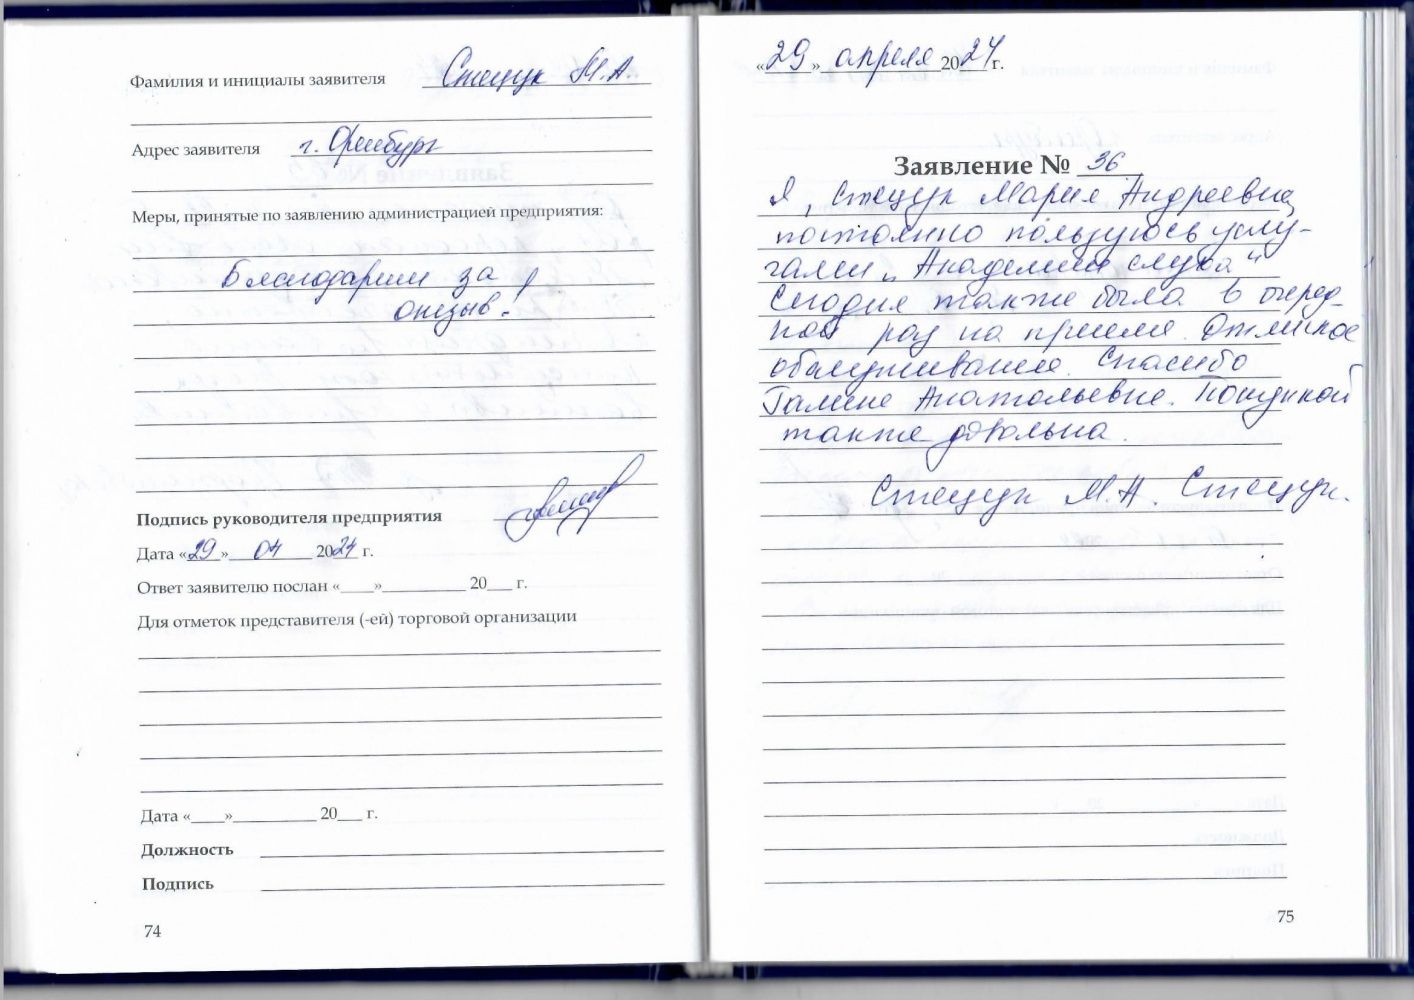 Фамилия и инициалы заявителя Стецук М.А.
Адрес заявителя г. Оренбург
Меры, принятые по заявлению администрацией предприятия:
Благодарим за
отзыв!
Подпись руководителя предприятия
Дата «29» 04 2024 г.
Ответ заявителю послан «____»__________ 20___ г.
Для отметок представителя (-ей) торговой организации
Дата «____»__________ 20___ г.
Должность
Подпись
74
«29» апреля 2024 г.
Заявление № 36
Я, Стецук Мария Андреевна,
постоянно пользуюсь услу-
гами „Академии слуха“
Сегодня также была в очеред-
ной раз на приеме. Отличное
обслуживание. Спасибо
Галине Анатольевне. Покупкой
также довольна.
Стецук М.А. Стецук.
75